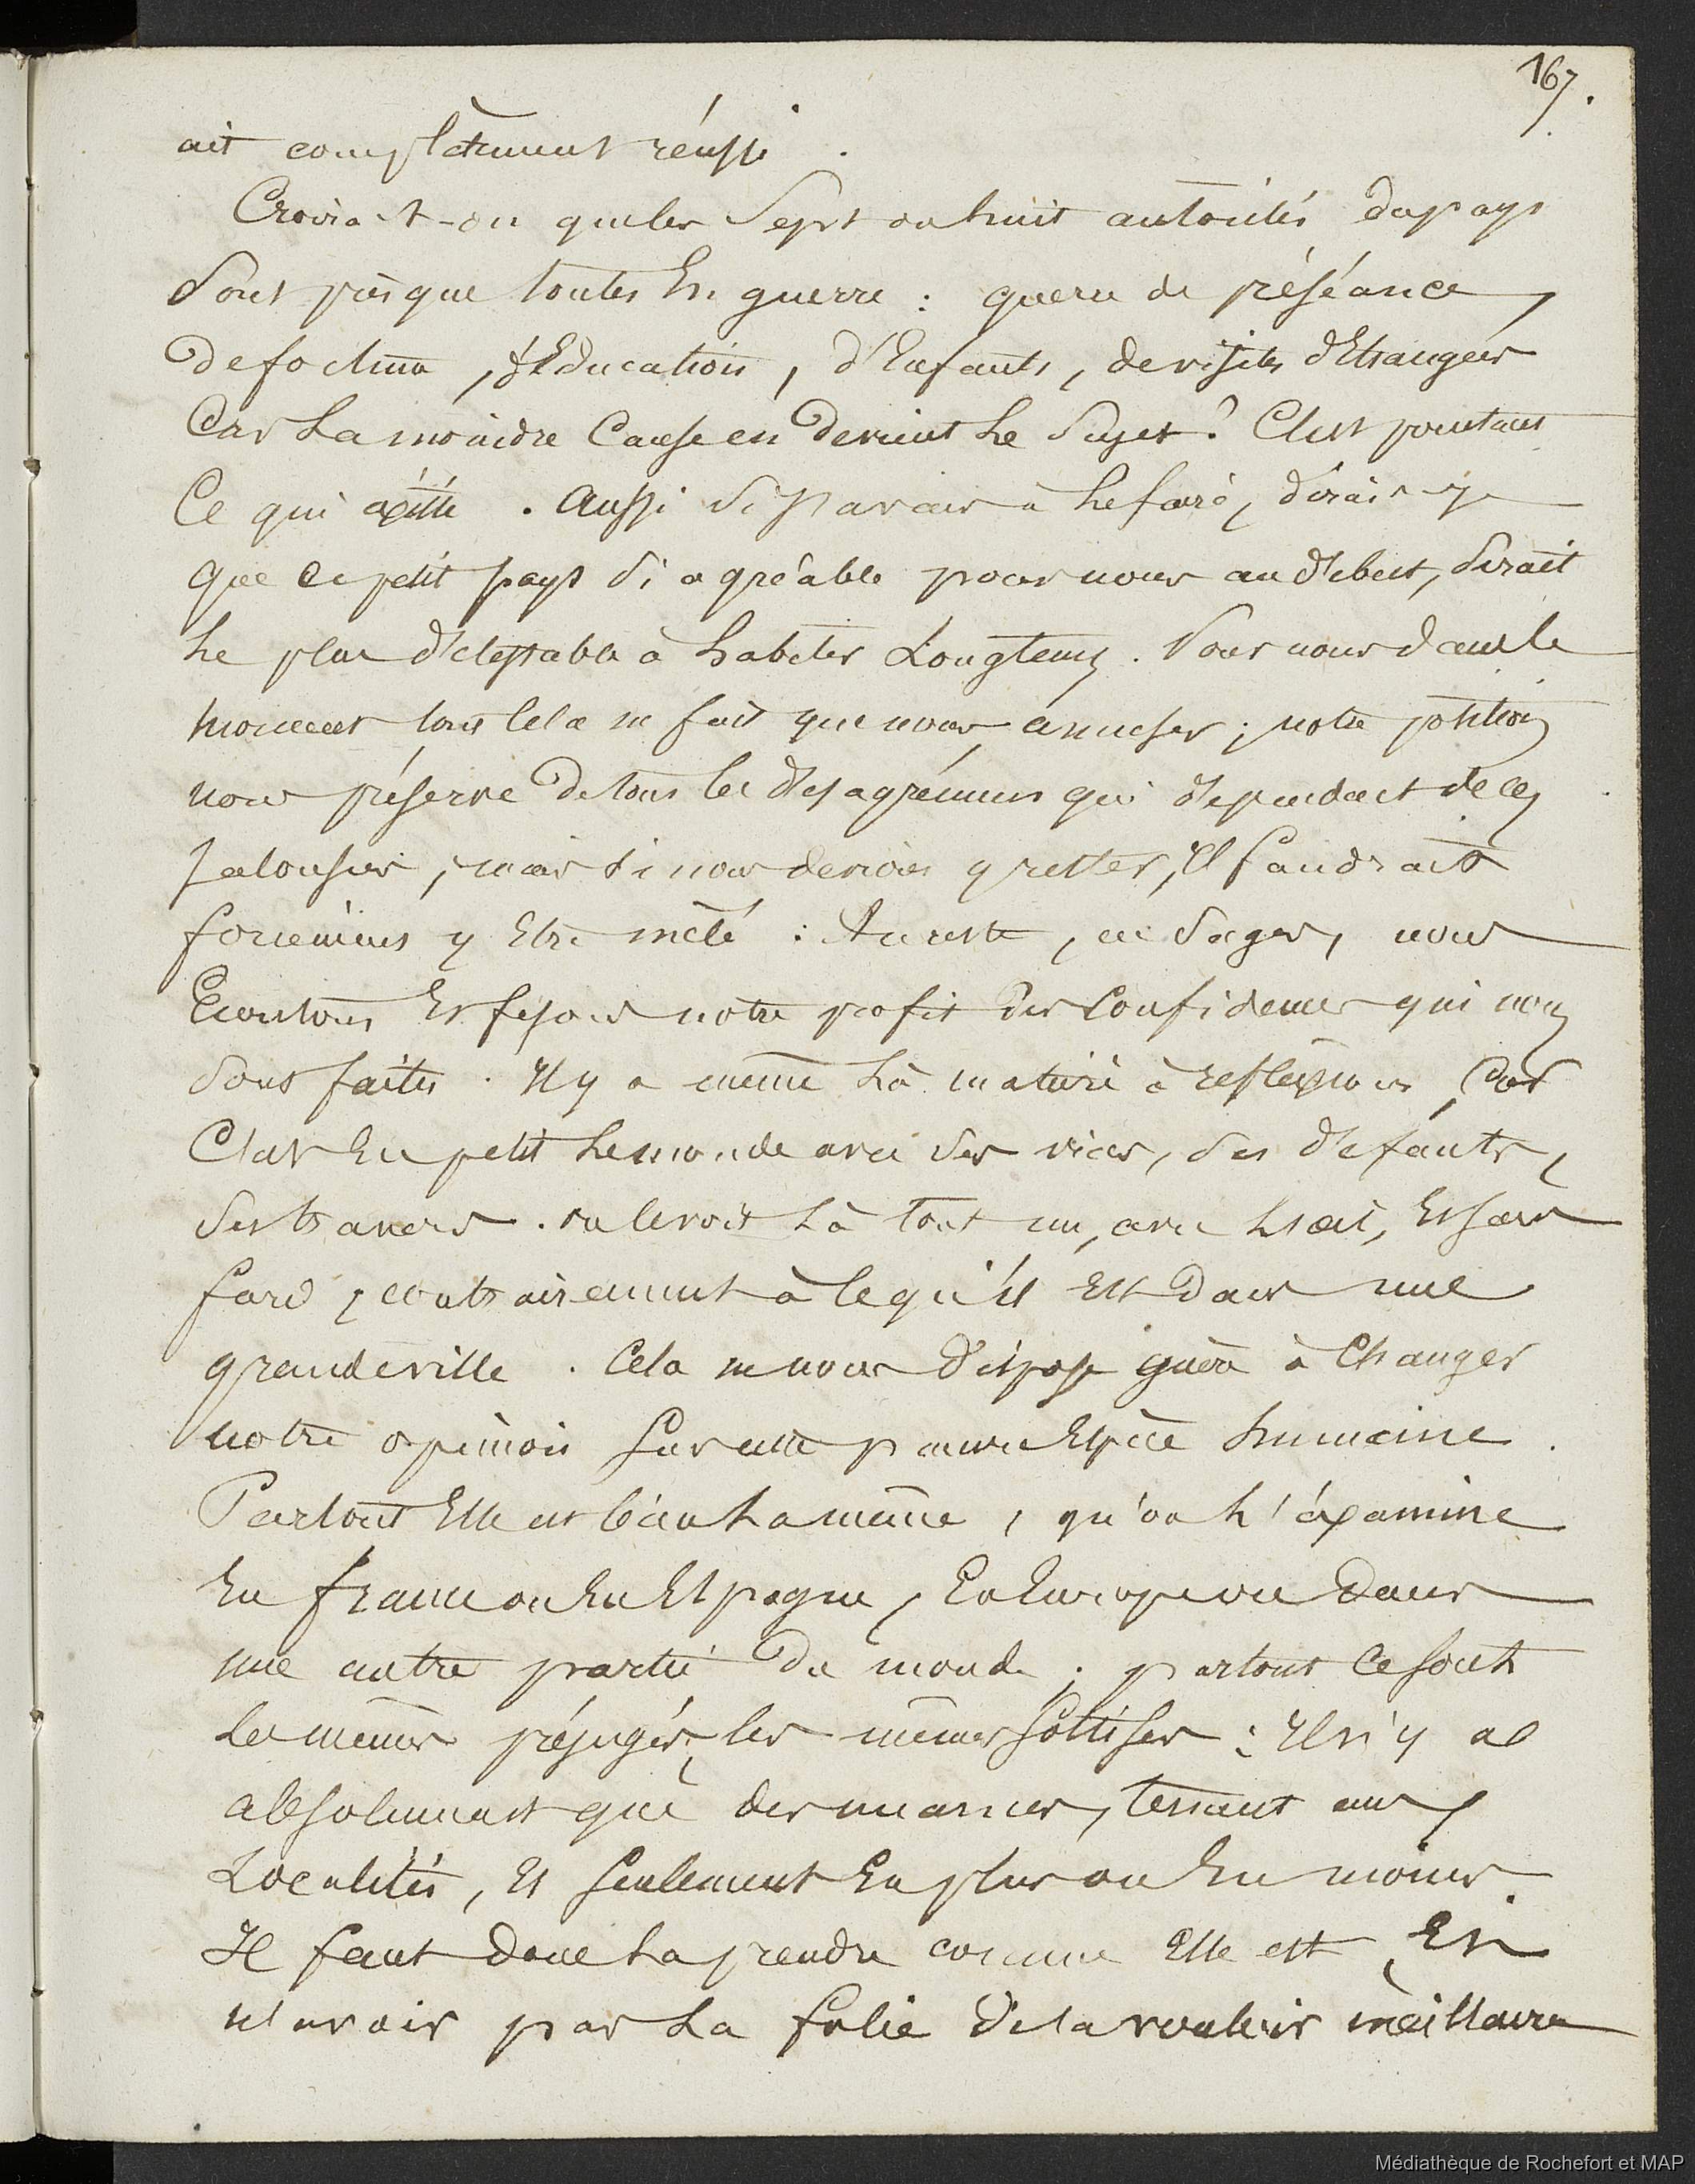 167.
ait complètement réussi.
Croira-t-on que les sept ou huit autorités du pays
sont presque toutes En guerre : guerre de préséance,
de fortune, d'Education, d'Enfants, de visites d'Etrangers
Car La moindre Cause en devient Le Sujet ? C'est pourtant
Ce qui existe. Aussi si j'avais à Le faire, dirais-je
que ce petit pays si agréable pour nous au début, serait
Le plus détestable à habiter Longtems. Pour nous dans le
moment tout cela ne fait que nous amuser ; notre position
nous préserve de tous les désagrémens qui dépendent de ces
Jalousies, mais si nous devions y rester, Il faudrait
forcément y Etre mêlé : Au reste, en sages, nous
Ecoutons Et fesons notre profit des Confidences qui nous
sont faites. Il y a même Là matière à reflexions, Car
C'est En petit Le monde avec ses vices, ses défauts,
ses travers. on le voit Là tout nu, avec Et sans
fard, contrairement à ce qu'il Est dans une
grande ville. Cela ne nous dispose guère à Changer
notre opinion sur cette pauvre Espèce humaine.
Partout Elle est bien La même, qu'on L'éxamine
En france ou En Espagne, En Europe ou dans
une autre partie du monde ; partout Ce sont
Les mêmes préjugés, les mêmes sottises : Il n'y a
absolument que des nuances, tenant aux
Localités, Et seulement En plus ou En moins.
Il faut donc La prendre comme Elle est, Et
n'avoir pas La folie de la vouloir meilleure